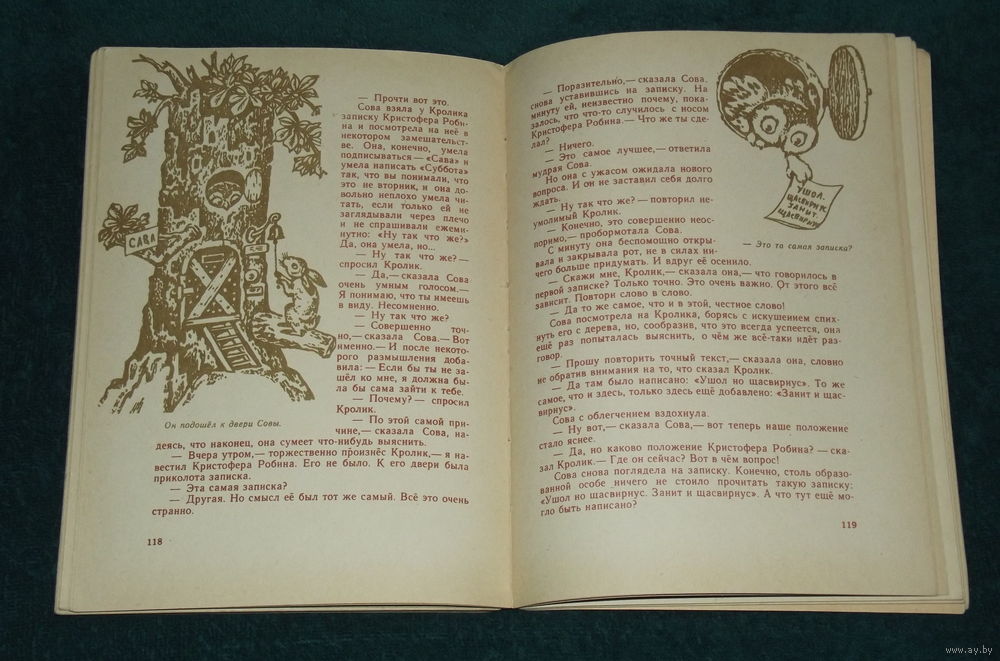 САВА
— Прочти вот это.
Сова взяла у Кролика
записку Кристофера Роби-
на и посмотрела на неё в
некотором замешательст-
ве. Она, конечно, умела
подписываться — «Сава» и
умела написать «Суббота»
так, что вы понимали, что
это не вторник, и она до-
вольно неплохо умела чи-
тать, если только ей не
заглядывали через плечо
и не спрашивали ежеми-
нутно: «Ну так что же?»
Да, она умела, но...
— Ну так что же? —
спросил Кролик.
— Да,— сказала Сова
очень умным голосом.—
Я понимаю, что ты имеешь
в виду. Несомненно.
— Ну так что же?
— Совершенно точ-
но,— сказала Сова.— Вот
именно.— И после некото-
рого размышления доба-
вила: — Если бы ты не за-
шёл ко мне, я должна бы-
ла бы сама зайти к тебе.
— Почему? — спросил
Кролик.
— По этой самой при-
чине,— сказала Сова, на-
Он подошёл к двери Совы.
деясь, что наконец, она сумеет что-нибудь выяснить.
— Вчера утром,— торжественно произнёс Кролик,— я на-
вестил Кристофера Робина. Его не было. К его двери была
приколота записка.
— Эта самая записка?
— Другая. Но смысл её был тот же самый. Всё это очень
странно.
118
— Поразительно,— сказала Сова.
снова уставившись на записку. На
минуту ей, неизвестно почему, пока-
залось, что что-то случилось с носом
Кристофера Робина.— Что же ты сде-
лал?
— Ничего.
— Это самое лучшее,— ответила
мудрая Сова.
Но она с ужасом ожидала нового
вопроса. И он не заставил себя долго
ждать.
— Ну так что же? — повторил не-
умолимый Кролик.
— Конечно, это совершенно неос-
поримо,— пробормотала Сова.
С минуту она беспомощно откры-
вала и закрывала рот, не в силах ни-
чего больше придумать. И вдруг её осенило.
УШОЛ.
ЩАСВИРНУС.
ЗАНИТ.
ЩАСВИРНУС
— Это та самая записка?
— Скажи мне, Кролик,— сказала она,— что говорилось в
первой записке? Только точно. Это очень важно. От этого всё
зависит. Повтори слово в слово.
— Да то же самое, что и в этой, честное слово!
Сова посмотрела на Кролика, борясь с искушением спих-
нуть его с дерева, но, сообразив, что это всегда успеется, она
ещё раз попыталась выяснить, о чём же всё-таки идёт раз-
говор.
— Прошу повторить точный текст,— сказала она, словно
не обратив внимания на то, что сказал Кролик.
— Да там было написано: «Ушол но щасвирнус». То же
самое, что и здесь, только здесь ещё добавлено: «Занит и щас-
вирнус».
Сова с облегчением вздохнула.
— Ну вот,— сказала Сова,— вот теперь наше положение
стало яснее.
— Да, но каково положение Кристофера Робина? — ска-
зал Кролик.— Где он сейчас? Вот в чём вопрос!
Сова снова поглядела на записку. Конечно, столь образо-
ванной особе ничего не стоило прочитать такую записку:
«Ушол но щасвирнус. Занит и щасвирнус». А что тут ещё мо-
гло быть написано?
119
www.ay.by